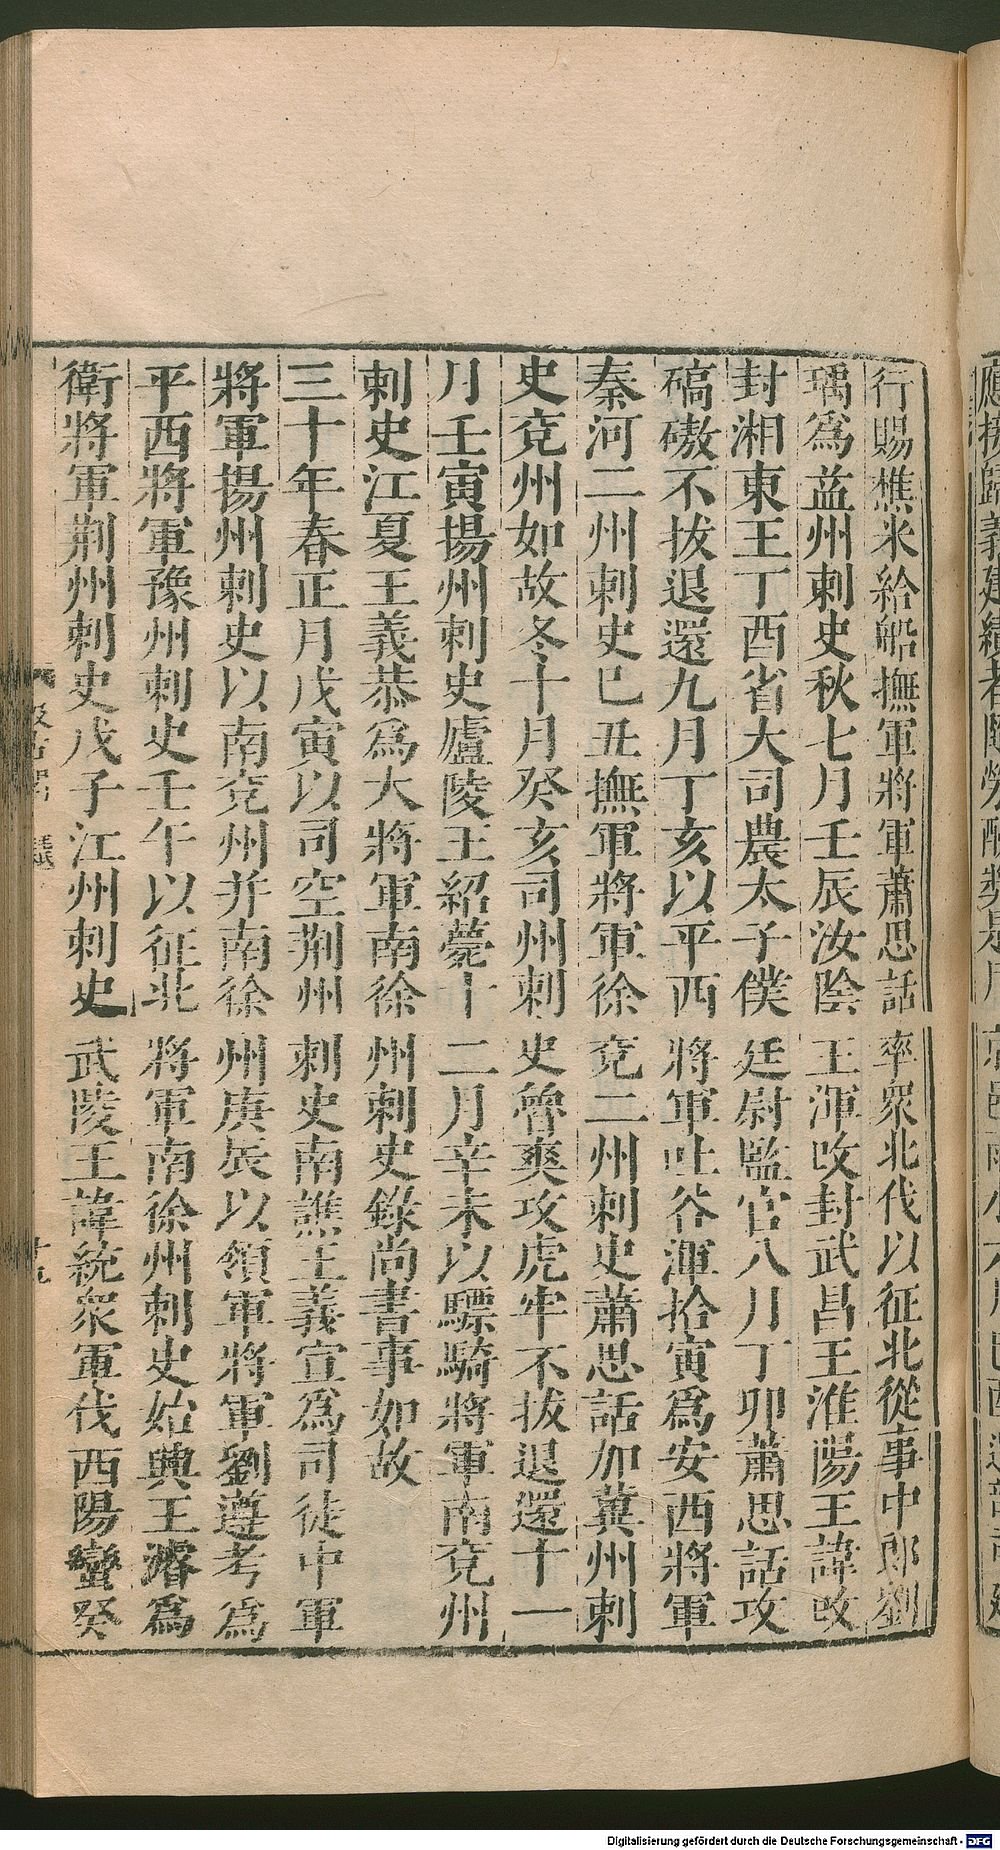 行賜樵米給船撫軍將軍蕭思話率衆北伐以征北從事中郎劉
瑀爲益州刺史秋七月壬辰汝陰王渾改封武昌王淮陽王諱改
封湘東王丁酉省大司農太子僕廷尉監官八月丁卯蕭思話攻
碻磝不拔退還九月丁亥以平西將軍吐谷渾拾寅爲安西將軍
秦河二州刺史已丑撫軍將軍徐兗二州刺史蕭思話加冀州刺
史兗州如故冬十月癸亥司州刺史魯爽攻虎牢不拔退還十一
月壬寅揚州刺史廬陵王紹薨十二月辛未以驃騎將軍南兗州
刺史江夏王義恭爲大將軍南徐州刺史錄尚書事如故
三十年春正月戊寅以司空荆州刺史南譙王義宣爲司徒中軍
將軍揚州刺史以南兗州并南徐州庚辰以領軍將軍劉遵考爲
平西將軍豫州刺史壬午以征北將軍南徐州刺史始興王濬爲
衛將軍荆州刺史戊子江州刺史武陵王諱統衆軍伐西陽蠻癸
Digitalisierung gefördert durch die Deutsche Forschungsgemeinschaft - DFG